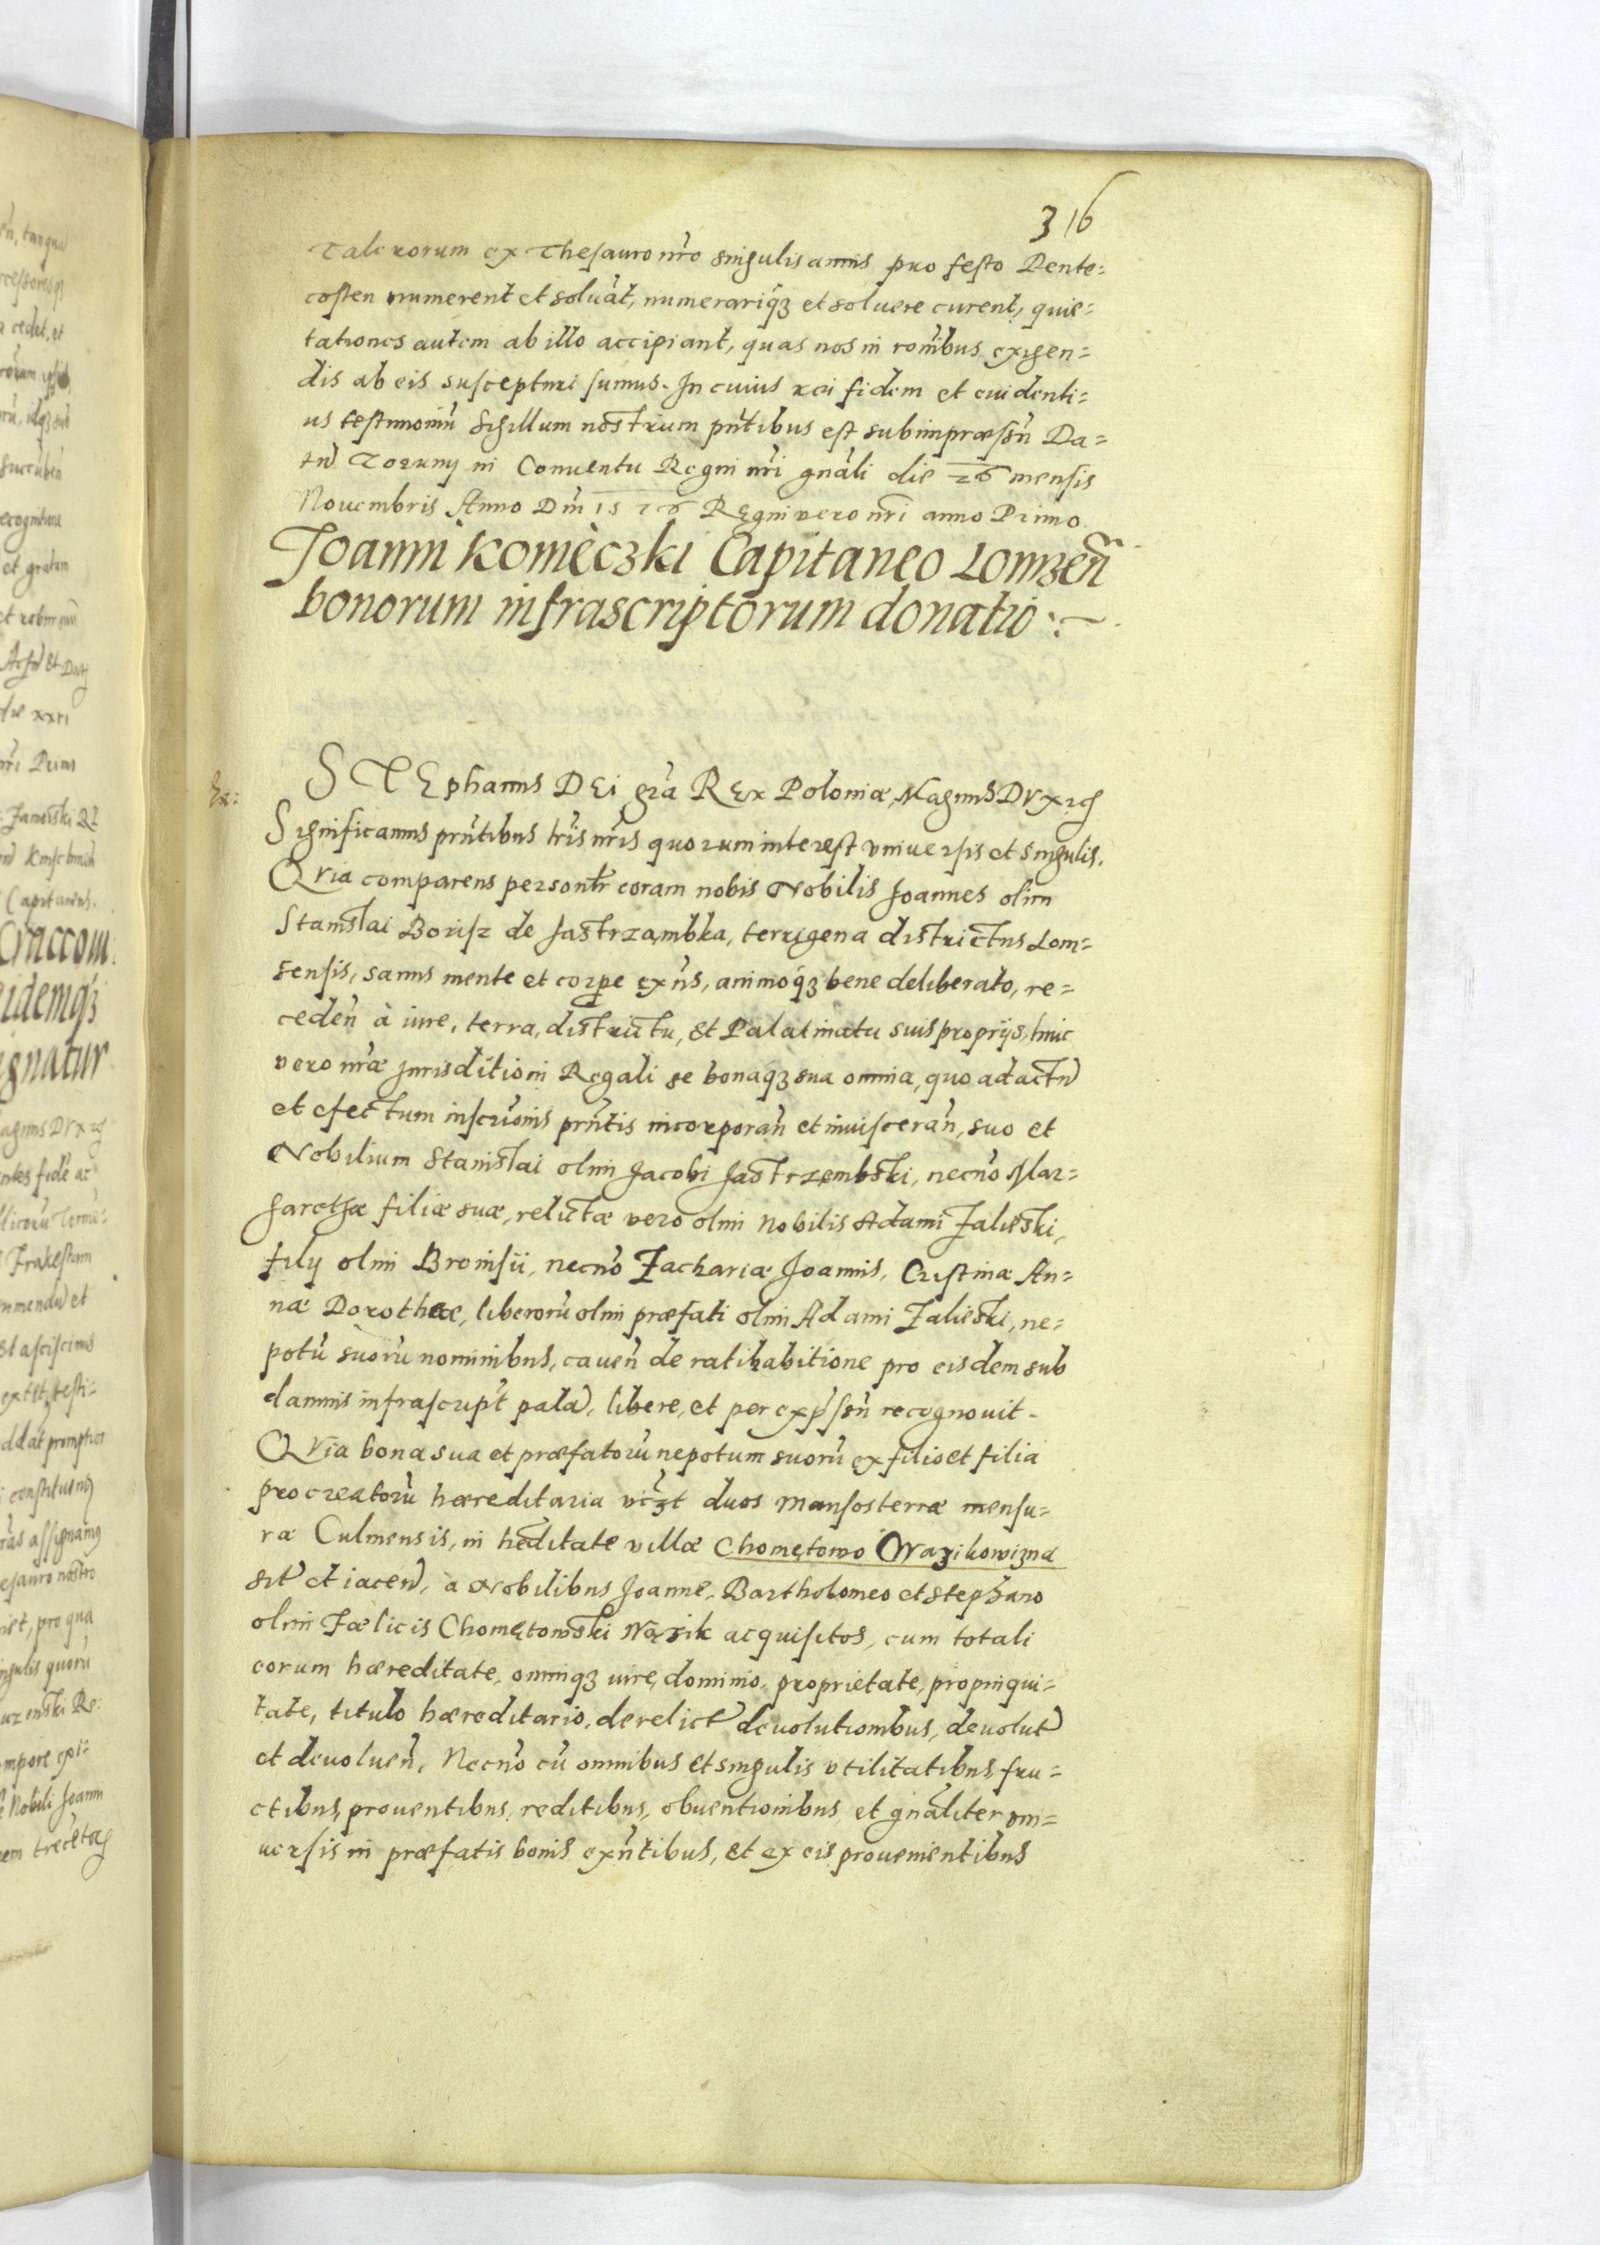 316
Talerorum ex Thesauro nr̃o singulis annis pro festo Pente=
costen numerent et soluãt, numerariq́ʒ et soluere curent, quie=
tationes autem ab illo accipiant, quas nos in rõnibus exigen=
dis ab eis suscepturi sumus. In cuius rei fidem et euidenti=
us testimoniũ Sigillum nostrum pñtibus est subimpræssũ Da=
tũ Toruny in Conuentu Regni nr̃i gñali die 26 mensis
Nouembris Anno Dñi 1576 Regni vero nr̃i anno Primo.
Joanni Komèczki Capitaneo Lomzeñ
bonorum infrascriptorum donatio
STEphanus DEi gr̃a REx Poloniæ, Magnus DVx
Significamus præñtibus lr̃is nr̃is quorum interest vniuersis et singulis.
QVia comparens personlr̃ coram nobis Nobilis Joannes olim
Stanislai Borisz de Jastrzambka, terrigena districtus Lom=
sensis, sanus mente et corpe exñs, animoq́ʒ bene deliberato, re=
cedeñ à iure, terra, districtu, et Palatinatu suis proprijs, huic
vero nr̃æ Jurisditioni Regali se bonaq́ʒ sua omnia, quo ad actũ
et efectum inscrip̃onis præñtis incorporañ et inuisceran̄, suo et
Nobilium Stanislai olim Jacobi Jastrzembski, necnõ Mar=
garethæ filiæ suæ, relictæ vero olim Nobilis Adami Zalieski,
filij olim Bronisii, necnõ Zachariæ Joannis, Cristinæ An=
næ Dorotheæ, liberorũ olim præfati olim Adami Zalieski, ne=
potũ suorũ nominibus, caueñ de ratihabitione pro eisdem sub
damnis infrascript̃ palã, libere, et per exp̃ssũ recognouit.
QVia bona sua et præfatorũ nepotum suorũ ex filio et filia
procreatorũ hæreditaria vicʒt duos mansos terræ mensu=
ræ Culmensis, in hæditate villæ Chomętowo Wazikowizna
sit̃ et iaceñ, à Nobilibus Joanne, Bartholomeo et Stephano
olim Fælicis Chomętowski Wązik acquisitos, cum totali
eorum hæreditate, omniq́ʒ iure, dominio, proprietate, propinqui=
tate, titulo hæreditario, derelict̃ deuolutionibus, deuolut̃
et deuolueñ, Necnõ cũ omnibus et singulis vtilitatibus, fru=
ctibus, prouentibus, reditibus, obuentionibus, et gñaliter vni=
uersis in præfatis bonis exñtibus, et ex eis prouenientibus